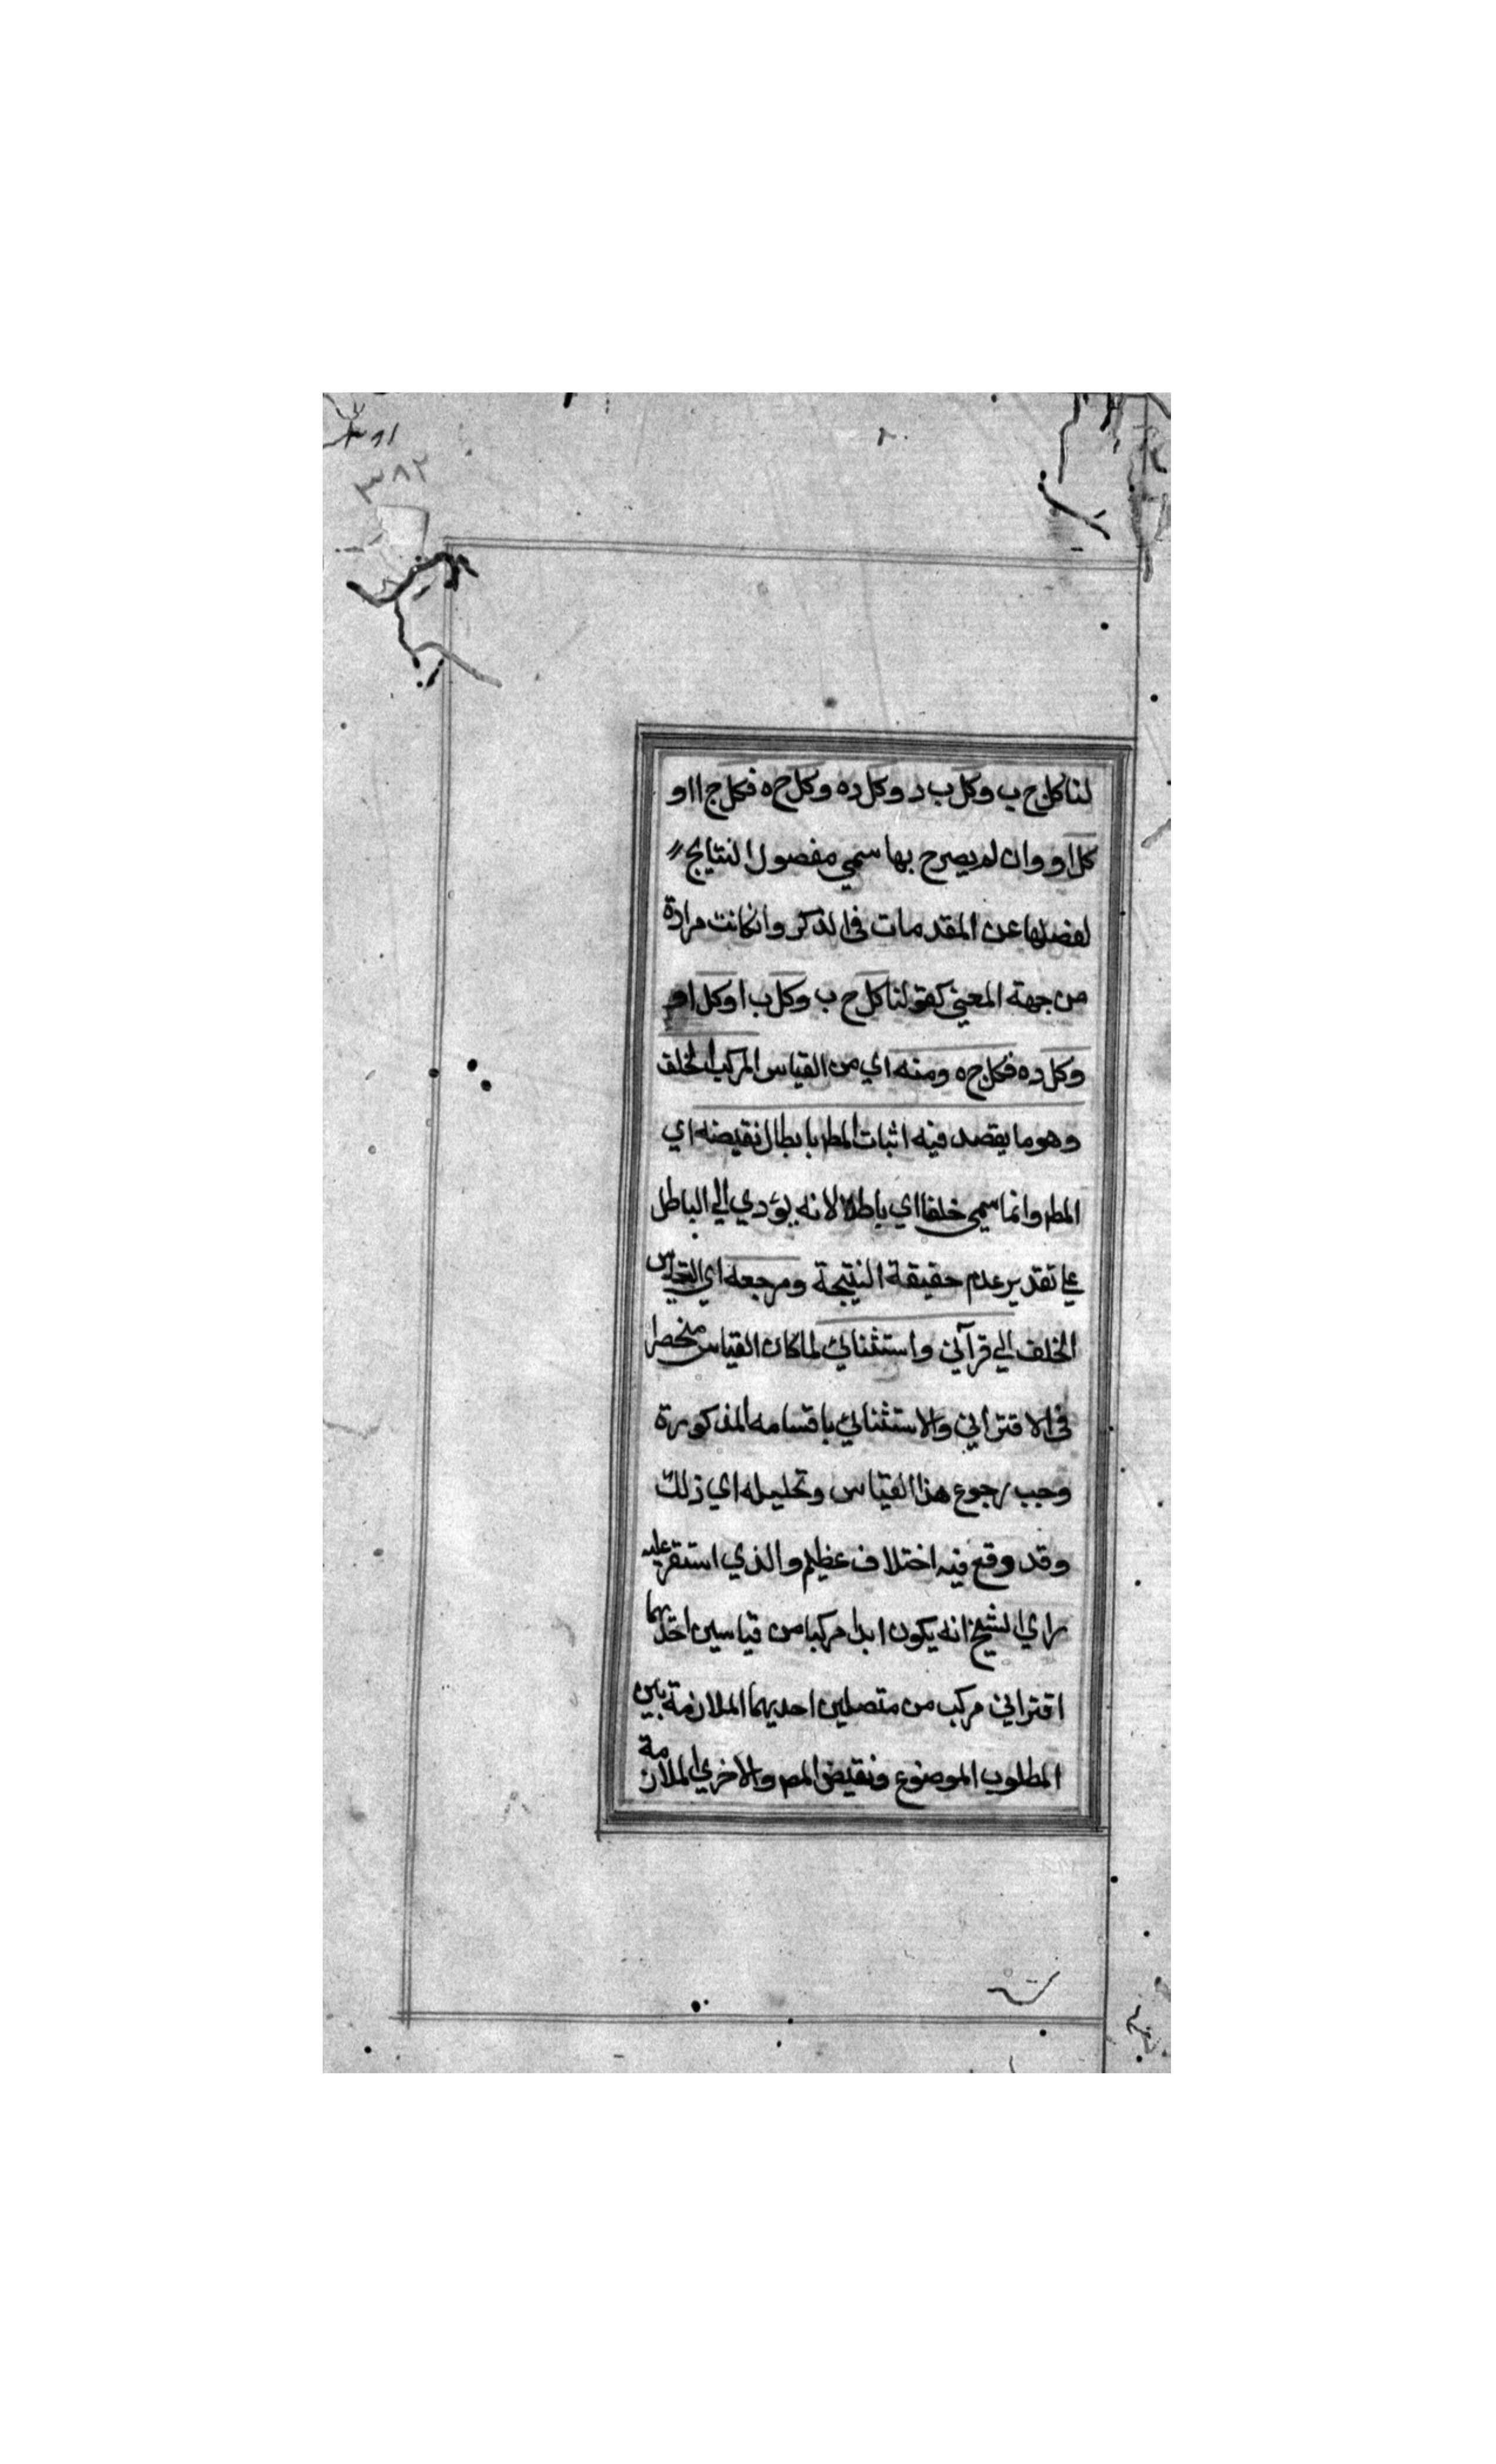 ٣٨٢
لنا كل ج ب وكل ب د وكل ده وكل ح ه فكل ج ا او
كل او وان لم يصرح بها سمي مفصول النتايج
لفصلها عن المقدمات في الذكر وانكانت مرادة
من جهة المعني كقولنا كل ج ب وكل ب ا وكل او
وكل ده فكل ج ه ومنه اي من القياس المركب الخلف
وهو ما يقصد فيه اثبات المط بابطال نقيضه اي
المط وانما سمي خلفا اي باطلا لانه يؤدي الي الباطل
علي تقدير عدم حقيقة النتيجة ومرجعه اي القياس
الخلف الي قرآني واستثنائي لما كان القياس منحصرا
في الاقتراني والاستثنائي باقسامه المذكورة
وجب رجوع هذا القياس وتحليله اي ذلك
وقد وقع فيه اختلاف عظيم والذي استقر عليه
راي الشيخ انه يكون ابدا مركبا من قياسين احديهما
اقتراني مركب من متصلين احديهما الملازمة بين
المطلوب الموضوع ونقيض المط والاخري الملازمة